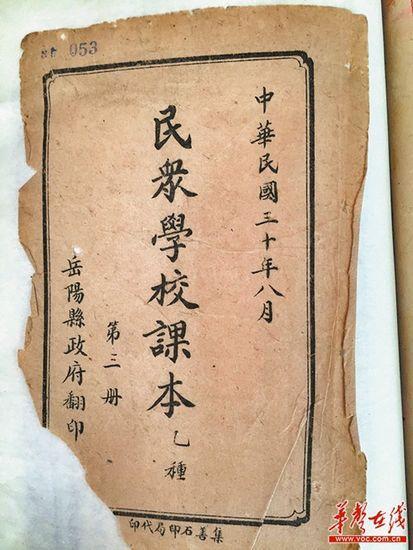 053
中華民國三十年八月
民眾學校課本乙種
第三册
岳陽縣政府翻印
印代局印石善集
華聲在线
www.voc.com.cn